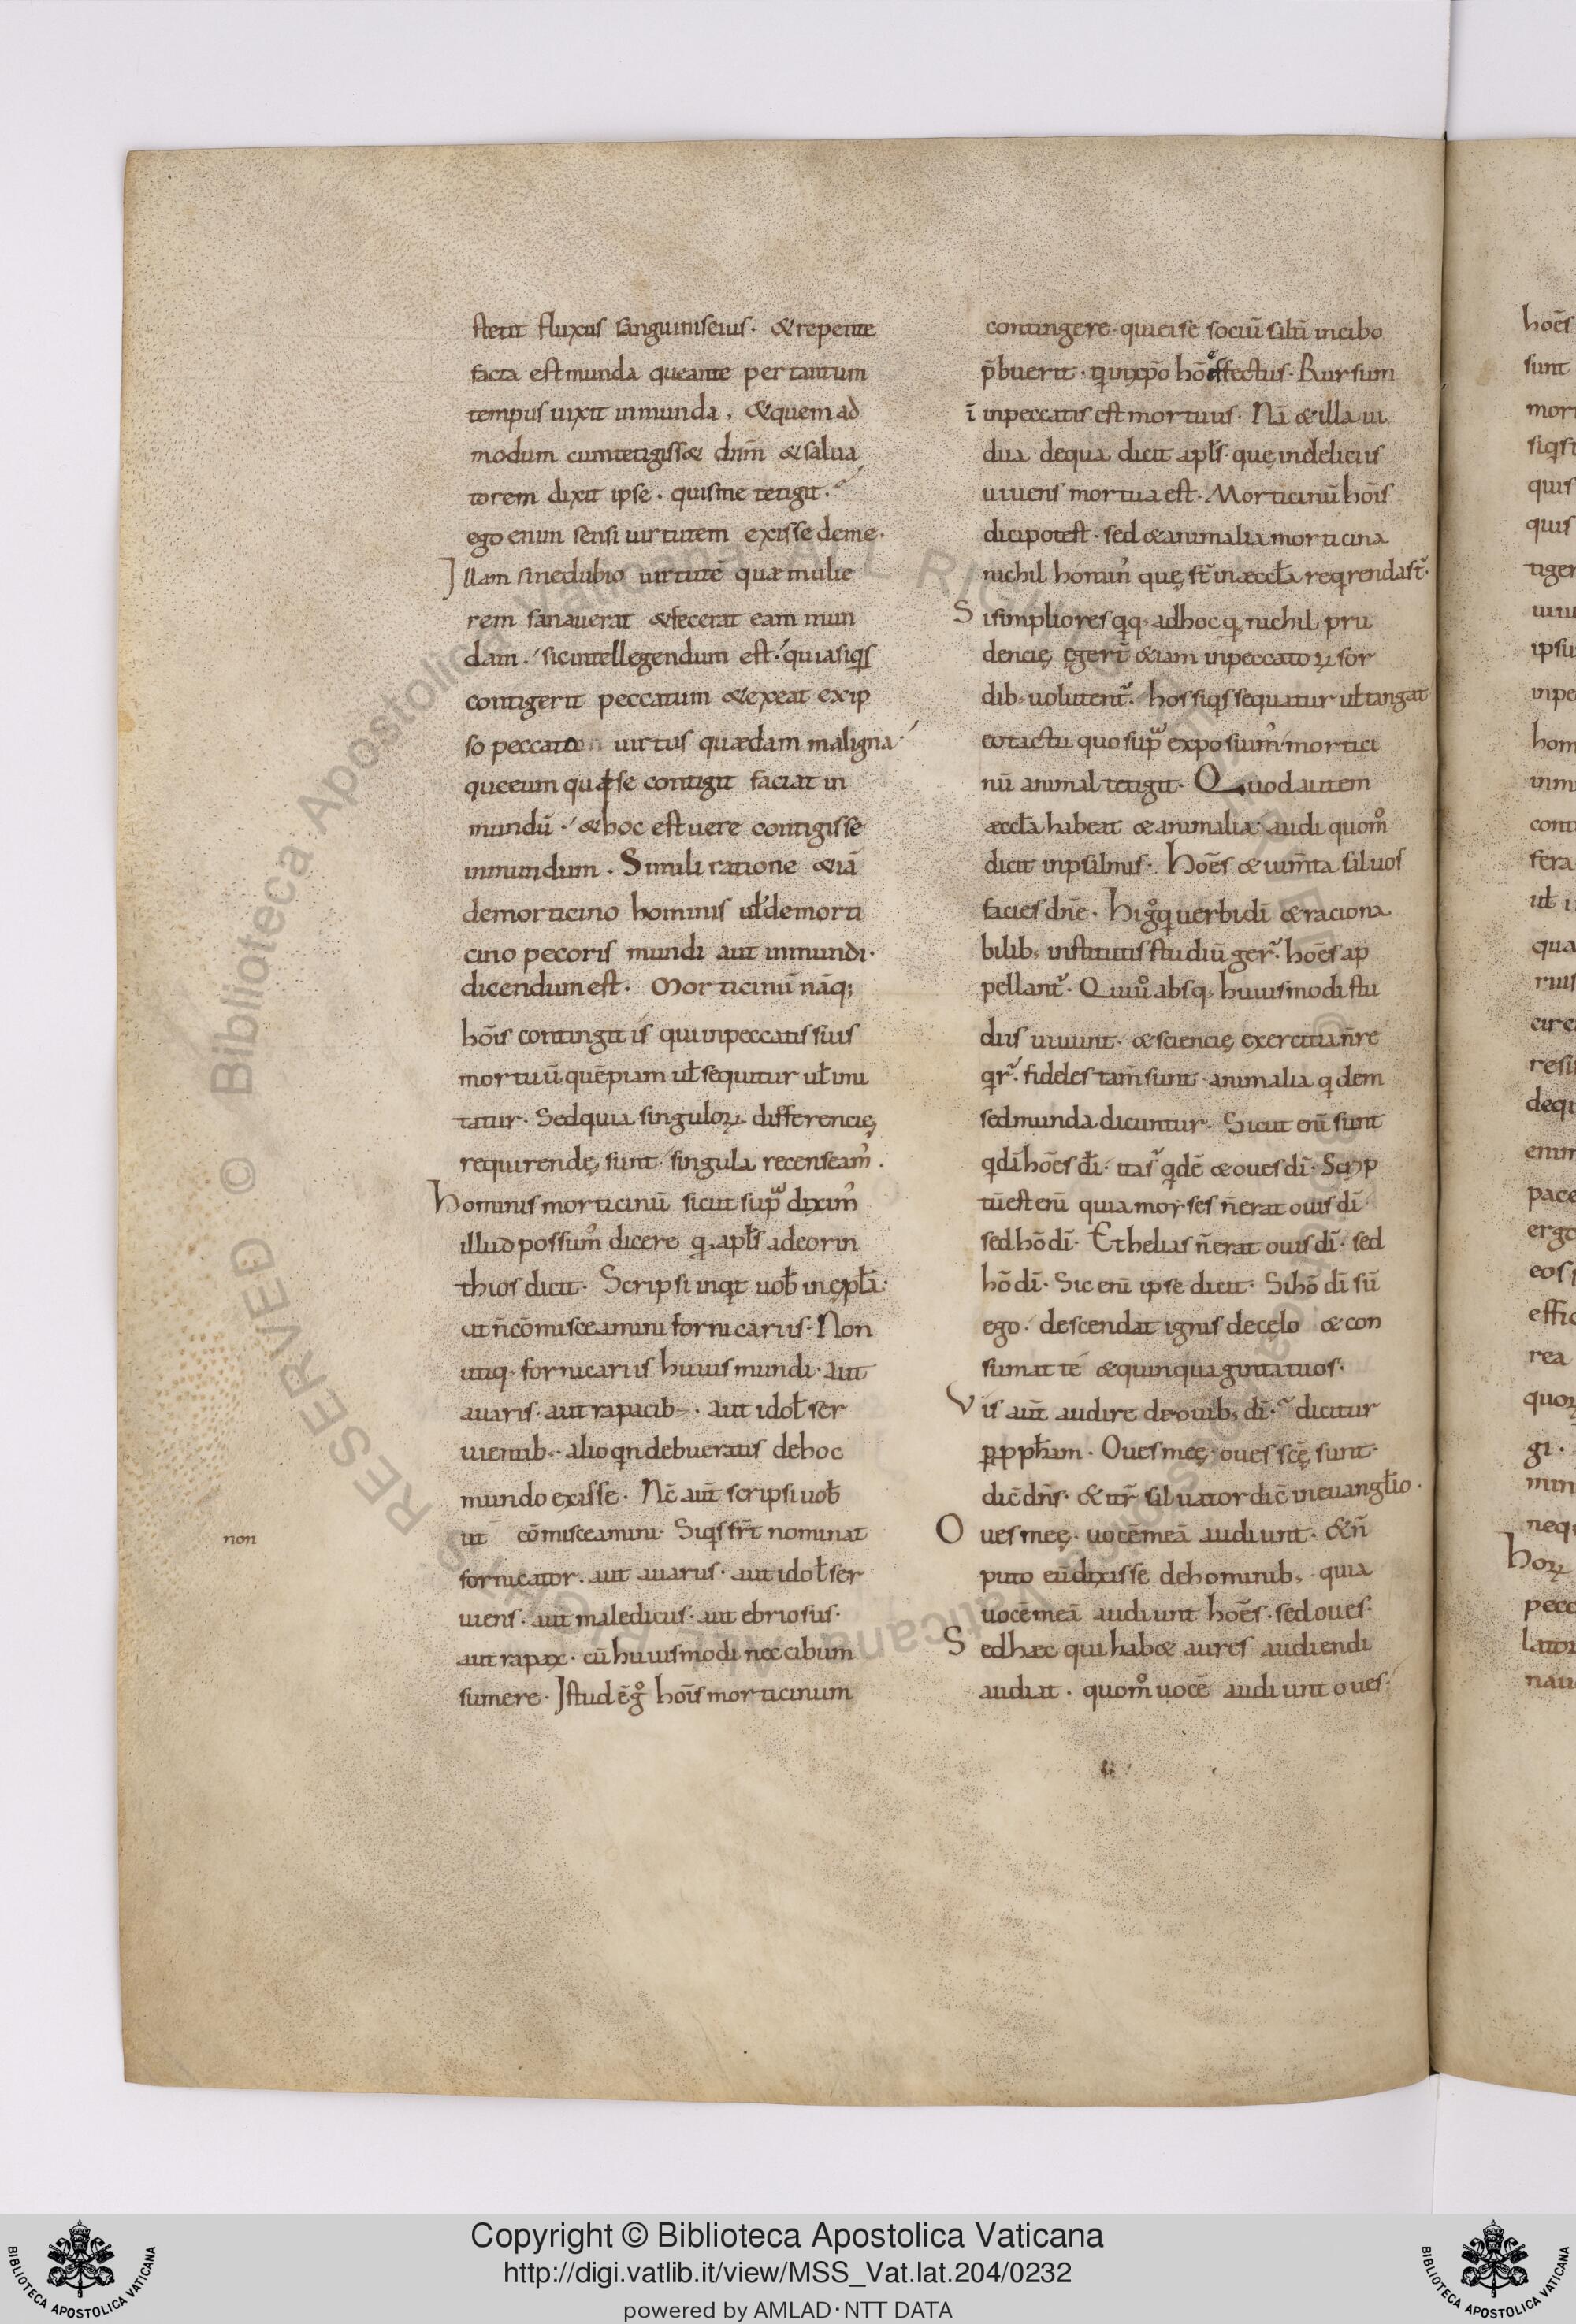 stetit fluxus sanguinis eius · & repente
facta est munda que ante per tantum
tempus uixit inmunda , & quem ad
modum cum tetigiss& dnm̄ & salua
torem dixit ipse · quis me tetigit ·
ego enim sensi uirtutem exisse de me ·
Illam sine dubio uirtutē quæ mulie
rem sanauerat & fecerat eam mun
dam · sic intellegendum est · quia siqs
contigerit peccatum & exeat ex ip
so peccato uirtus quædam maligna
que eum qui se contigit faciat in
mundū · & hoc est uere contigisse
inmundum · Simili ratione &iā
de morticino hominis uł de morti
cino pecoris mundi aut inmundi ·
dicendum est · Morticinū nāq;
hōis contingit is qui in peccatis suis
mortuū quēpiam uł sequitur uł imi
tatur · Sed quia singuloꝝ differencię
requirendę sunt · singula recenseam᾽ ·
Hominis morticinū sicut sup̄ dixim᾽
illud possum᾽ dicere q apłs ad corin
thios dicit · Scripsi inqt uob̄ in ępła ·
ut n̄ cōmisceamini fornicariis · Non
utiq · fornicariis huius mundi · aut
auaris · aut rapacib; · aut idoł ser
uientib; · alioqn debueratis de hoc
mundo exisse · Nc̄ aut̄ scripsi uob̄
non
ut cōmisceamini · Siqs fr̄t nominat
fornicator · aut auarus · aut idoł ser
uiens · aut maledicus · aut ebriosus ·
aut rapax · cū huiusmodi nec cibum
sumere · Istud ē g° hōis morticinum
contingere · qui ei se sociū siłū in cibo
p̄buerit · qui in xp̄o hō effectus · Rursum
ī in peccatis est mortuus · Nā & illa ui
dua de qua dicit apłs · quę in deliciis
uiuens mortua est · Morticinū hōis
dici potest · sed & animalia morticina
nichil homin᾽ quę st̄ in æccła reqrenda st̄ ·
Si simpliores qq; adhoc q nichil pru
dencię egerт̄ &iam in peccatoꝝ sor
dib; uolutent᾽ · hos siqs sequatur uł tangat
eo tactu quo sup̄ exposuim᾽ mortici
nū animal tetigit · Quod autem
æccła habeat & animalia · audi quom°
dicit in psalmis · Hoēs & uim̄ta saluos
facies dn̄e · Hi g° q uerbi dī & raciona
bilib; institutis studiū ger᾽ · hoēs ap
pellant᾽ · Qui u° absq; huiusmodi stu
diis uiuunt · & sciencię exercitia n̄ re
qr᾽ · fideles tam̄ sunt · animalia qdem
sed munda dicuntur · Sicut enī sunt
qdā hoēs dī · ita s᾽ qdē & oues dī · Scrip
tū est enī quia moyses n̄ erat ouis dī ·
sed hō dī · Et helias n̄ erat ouis dī · sed
hō dī · Sic enī ipse dicit · Si hō dī sū
ego · descendat ignis de cęlo & con
sumat te & quinquaginta tuos ·
Vis aut̄ audire de ouib; dī · dicitur
ꝑ pph̄am · Oues meę · oues scę̄ sunt ·
dic̄ dn̄s · & itr̄ saluator dic̄ in euangłio ·
Oues meę · uocē meā audiunt · & n̄
puto eū dixisse de hominib; · quia
uocē meā audiunt hoēs · sed oues ·
Sed hæc qui hab& aures audiendi
audiat · quom° uocē audiunt oues ·
Copyright © Biblioteca Apostolica Vaticana
http://digi.vatlib.it/view/MSS_Vat.lat.204/0232
powered by AMLAD·NTT DATA